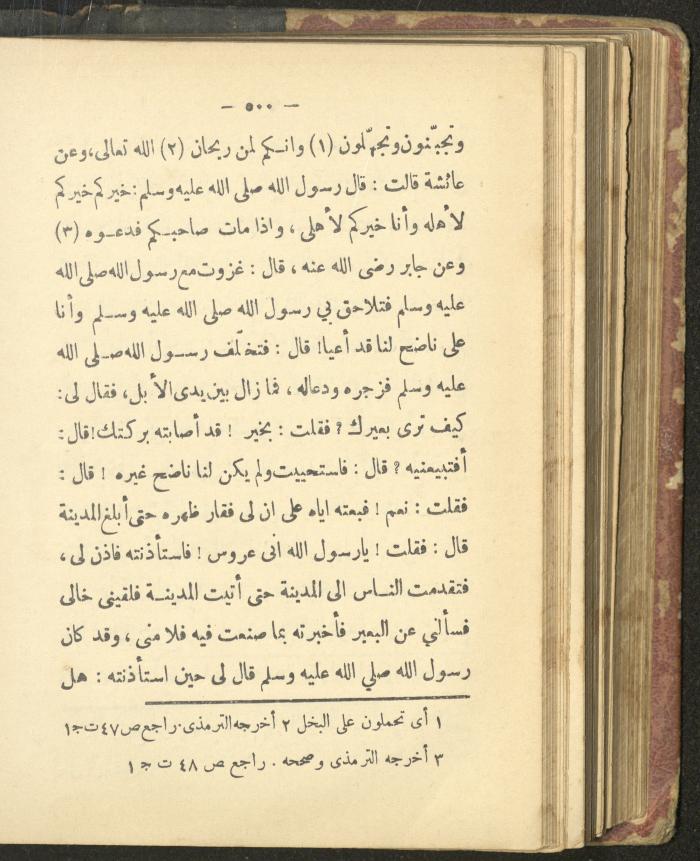 — ٥٠٠ —
وتجبّنون وتجهّلون (١) وانكم لمن ريحان (٢) الله تعالى، وعن
عائشة قالت : قال رسول الله صلى الله عليه وسلم : خيركم خيركم
لأهله وأنا خيركم لأهلى ، واذا مات صاحبكم فدعوه (٣)
وعن جابر رضى الله عنه ، قال : غزوت مع رسول الله صلى الله
عليه وسلم فتلاحق بي رسول الله صلى الله عليه وسلم وأنا
على ناضح لنا قد أعيا! قال : فتخلّف رسول الله صلى الله
عليه وسلم فزجره ودعاله ، فما زال بين يدى الأبل، فقال لى :
كيف ترى بعيرك ? فقلت : بخير ! قد أصابته بركتك! قال :
أفتبيعنيه ? قال : فاستحييت ولم يكن لنا ناضح غيره ! قال :
فقلت : نعم ! فبعته اياه على ان لى فقار ظهره حتى أبلغ المدينة
قال : فقلت ! يارسول الله انى عروس ! فاستأذنته فاذن لى ،
فتقدمت الناس الى المدينة حتى أتيت المدينة فلقينى خالى
فسألني عن البعير فأخبرته بما صنعت فيه فلامنى ، وقد كان
رسول الله صلي الله عليه وسلم قال لى حين استأذنته : هل
١ أى تحملون على البخل ٢ أخرجه الترمذى. راجع ص ٤٧ ت ج ١
٣ أخرجه الترمذى وصححه . راجع ص ٤٨ ت ج ١